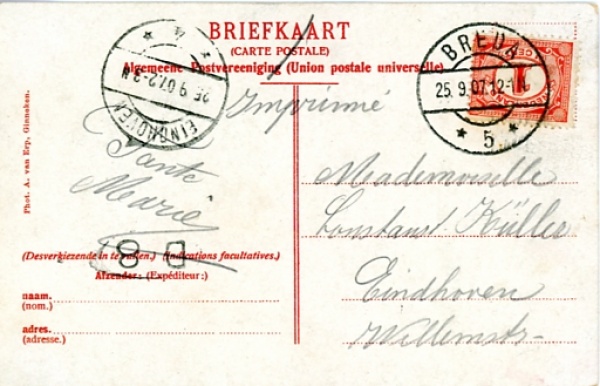 BRIEFKAART
(CARTE POSTALE)
Algemeene Postvereeniging (Union postale universelle)
EINDHOVEN
25.9.07.2-3N
BREDA
25.9.07.12-1
* 5 *
1
CENT
Imprimé
Tante
Marie
Phot. A. van Erp, Ginneken.
(Desverkiezende in te vullen.) (Indications facultatives.)
Afzender: (Expéditeur:)
naam.
(nom.)
adres.
(adresse.)
Meademoiselle
Constant Küller
Eindhoven
Willemstr-